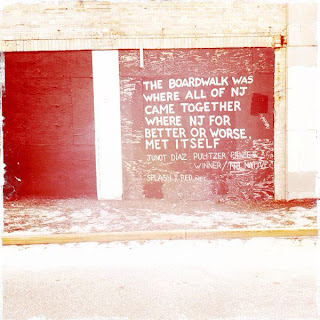 THE BOARDWALK WAS
WHERE ALL OF NJ
CAME TOGETHER
WHERE NJ FOR
BETTER OR WORSE,
MET ITSELF
JUNOT DIAZ PULITZER PRIZE
WINNER/ NJ NATIVE
SPLASH RED